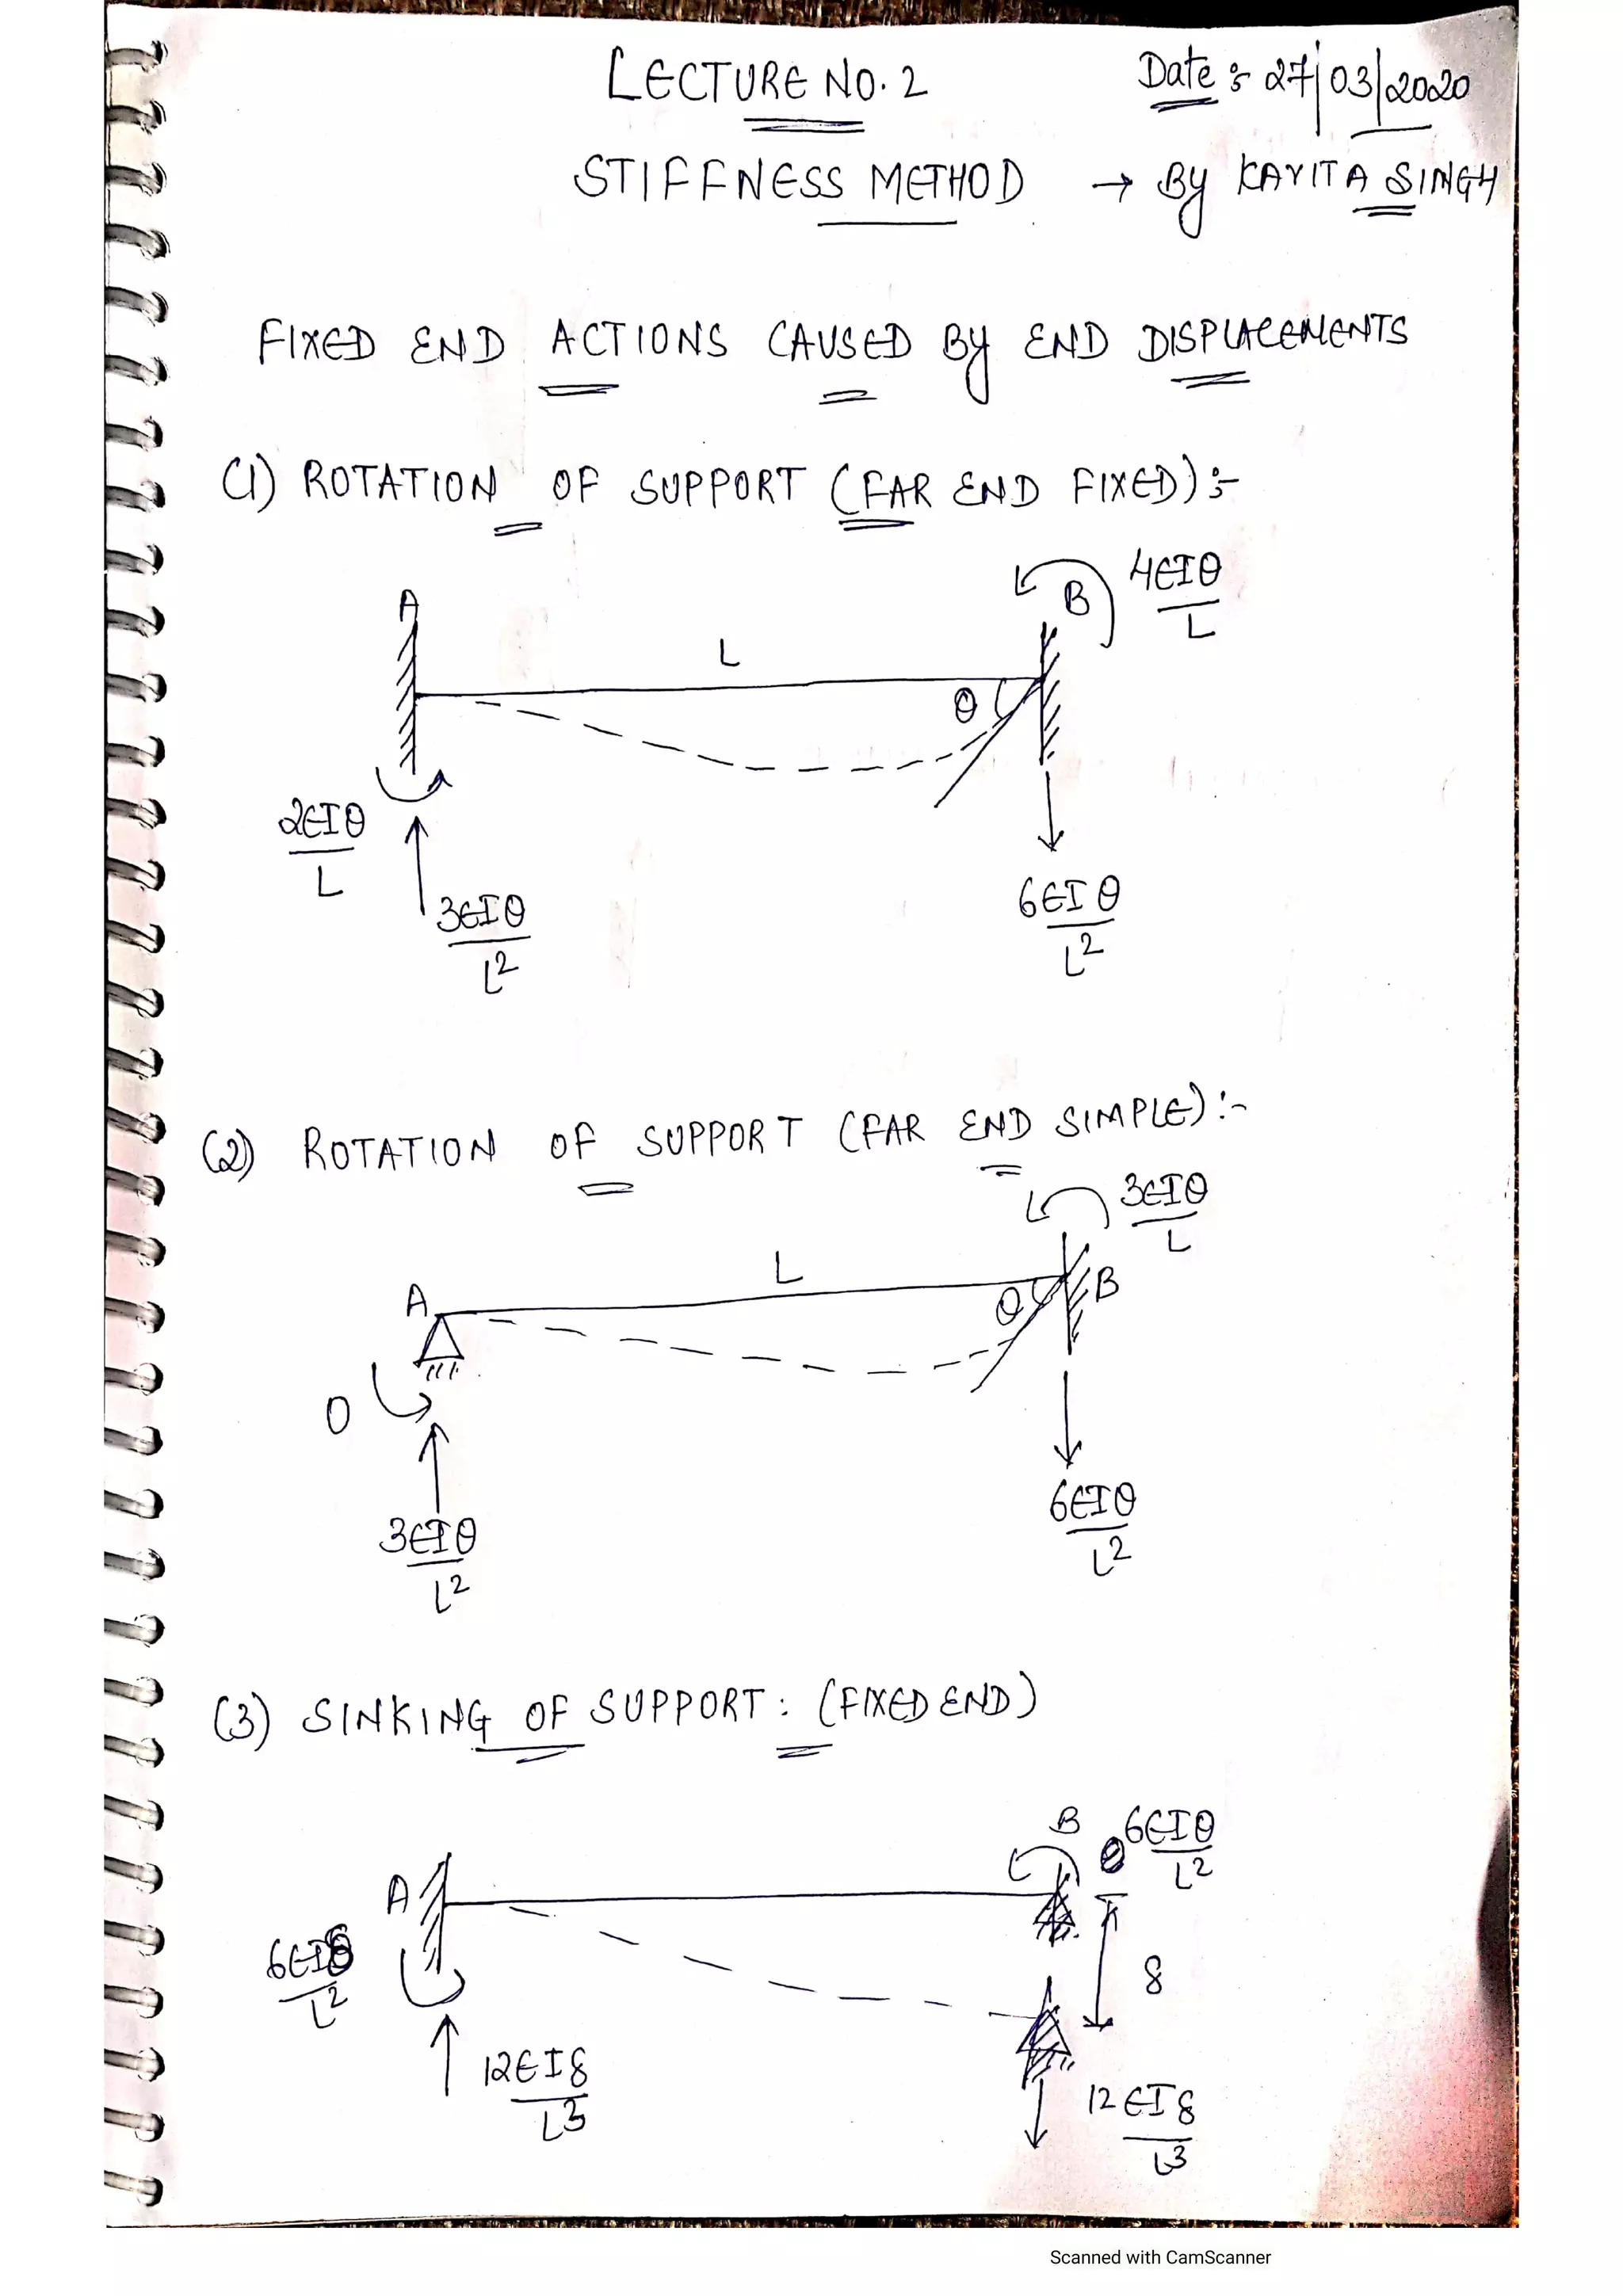 LECTURE NO. 2
Date :- 27/03/2020
STIFFNESS METHOD → By KAVITA SINGH
FIXED END ACTIONS CAUSED By END DISPLACEMENTS
(1) ROTATION OF SUPPORT (FAR END FIXED) :-
A
B
4EIθ
L
L
θ
2EIθ
L
3EIθ
L²
6EIθ
L²
(2) ROTATION OF SUPPORT (FAR END SIMPLE) :-
3EIθ
L
A
L
θ
B
0
3EIθ
L²
6EIθ
L²
(3) SINKING OF SUPPORT : (FIXED END)
B
6EIθ
L²
A
6EIδ
L²
δ
12EIδ
L³
12EIδ
L³
Scanned with CamScanner